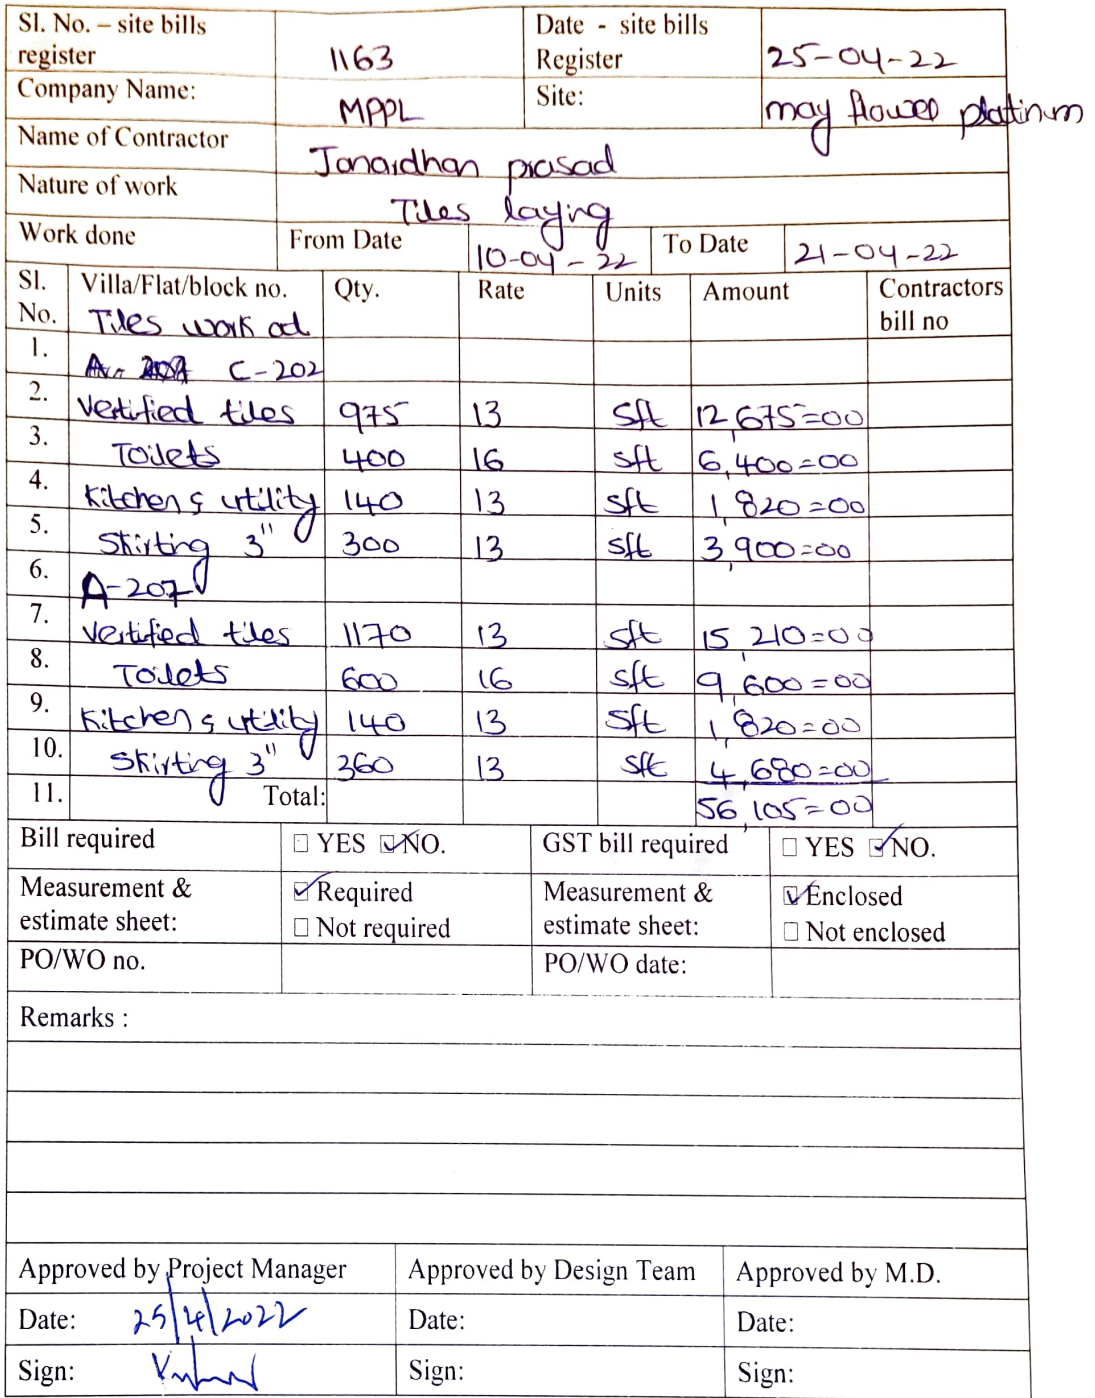 Sl. No. – site bills register 1163 Date - site bills Register 25-04-22
Company Name: MPPL Site: may flower platinum
Name of Contractor Janardhan prasad
Nature of work Tiles laying
Work done From Date 10-04-22 To Date 21-04-22
Sl. No. Villa/Flat/block no. Qty. Rate Units Amount Contractors bill no
Tiles work ad
1. C-202
2. Vertified tiles 975 13 sft 12,675=00
3. Toilets 400 16 sft 6,400=00
4. Kitchen & utility 140 13 sft 1,820=00
5. Skirting 3" 300 13 sft 3,900=00
6. A-207
7. Vertified tiles 1170 13 sft 15,210=00
8. Toilets 600 16 sft 9,600=00
9. Kitchen & utility 140 13 sft 1,820=00
10. Skirting 3" 360 13 sft 4,680=00
11. Total: 56,105=00
Bill required YES NO. GST bill required YES NO.
Measurement & estimate sheet: Required Measurement & estimate sheet: Enclosed
Not required Not enclosed
PO/WO no. PO/WO date:
Remarks :
Approved by Project Manager Approved by Design Team Approved by M.D.
Date: 25/4/2022 Date: Date:
Sign: Sign: Sign: